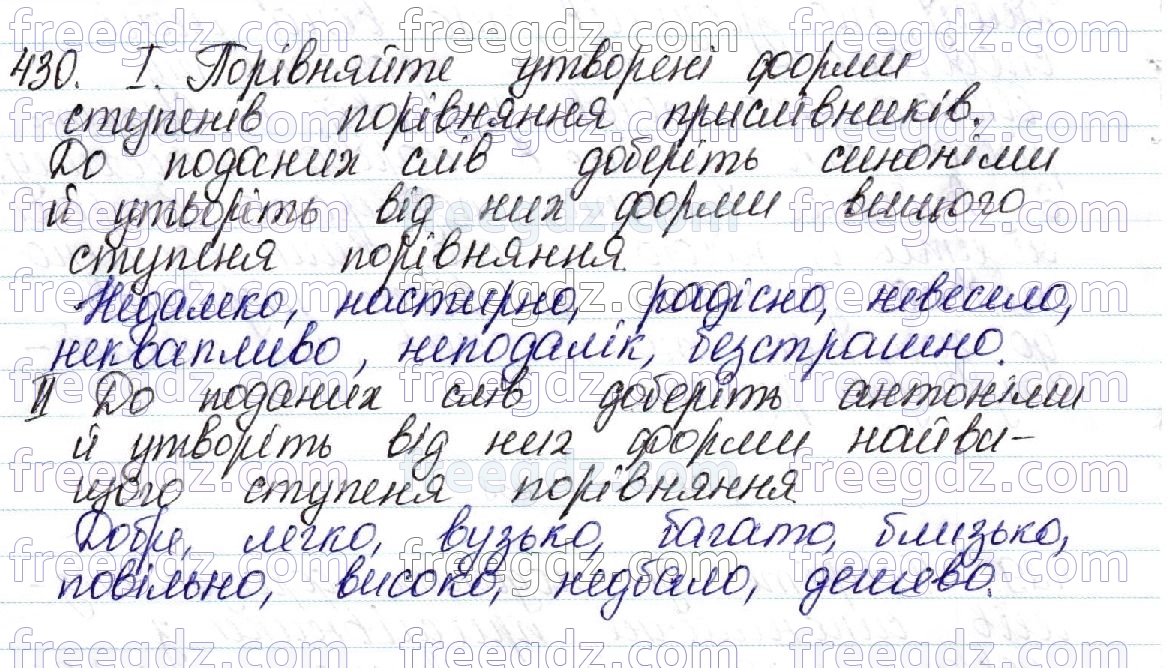 430. I. Порівняйте утворені форми
ступенів порівняння прислівників.
До поданих слів доберіть синоніми
й утворіть від них форми вищого
ступеня порівняння.
Недалеко, настирно, радісно, невесело,
неквапливо, неподалік, безстрашно.
II До поданих слів доберіть антоніми
й утворіть від них форми найви-
щого ступеня порівняння.
Добре, легко, вузько, багато, близько,
повільно, високо, недбало, дешево.
freegdz.com